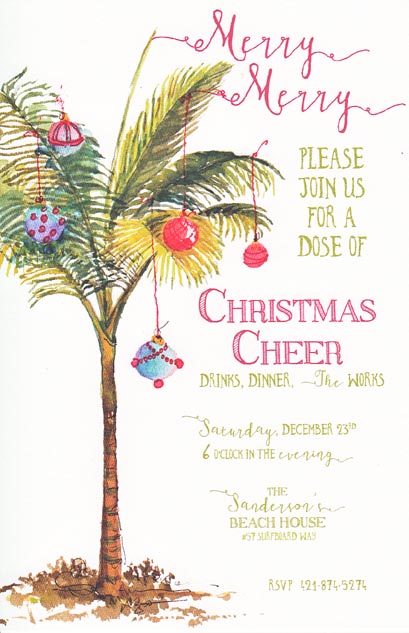 Merry
Merry
PLEASE
JOIN US
FOR A
DOSE OF
CHRISTMAS
CHEER
DRINKS, DINNER, The WORKS
Saturday, DECEMBER 23RD
6 O'CLOCK IN THE evening
THE
Sanderson's
BEACH HOUSE
#57 SURFBOARD WAY
RSVP 421-874-5274